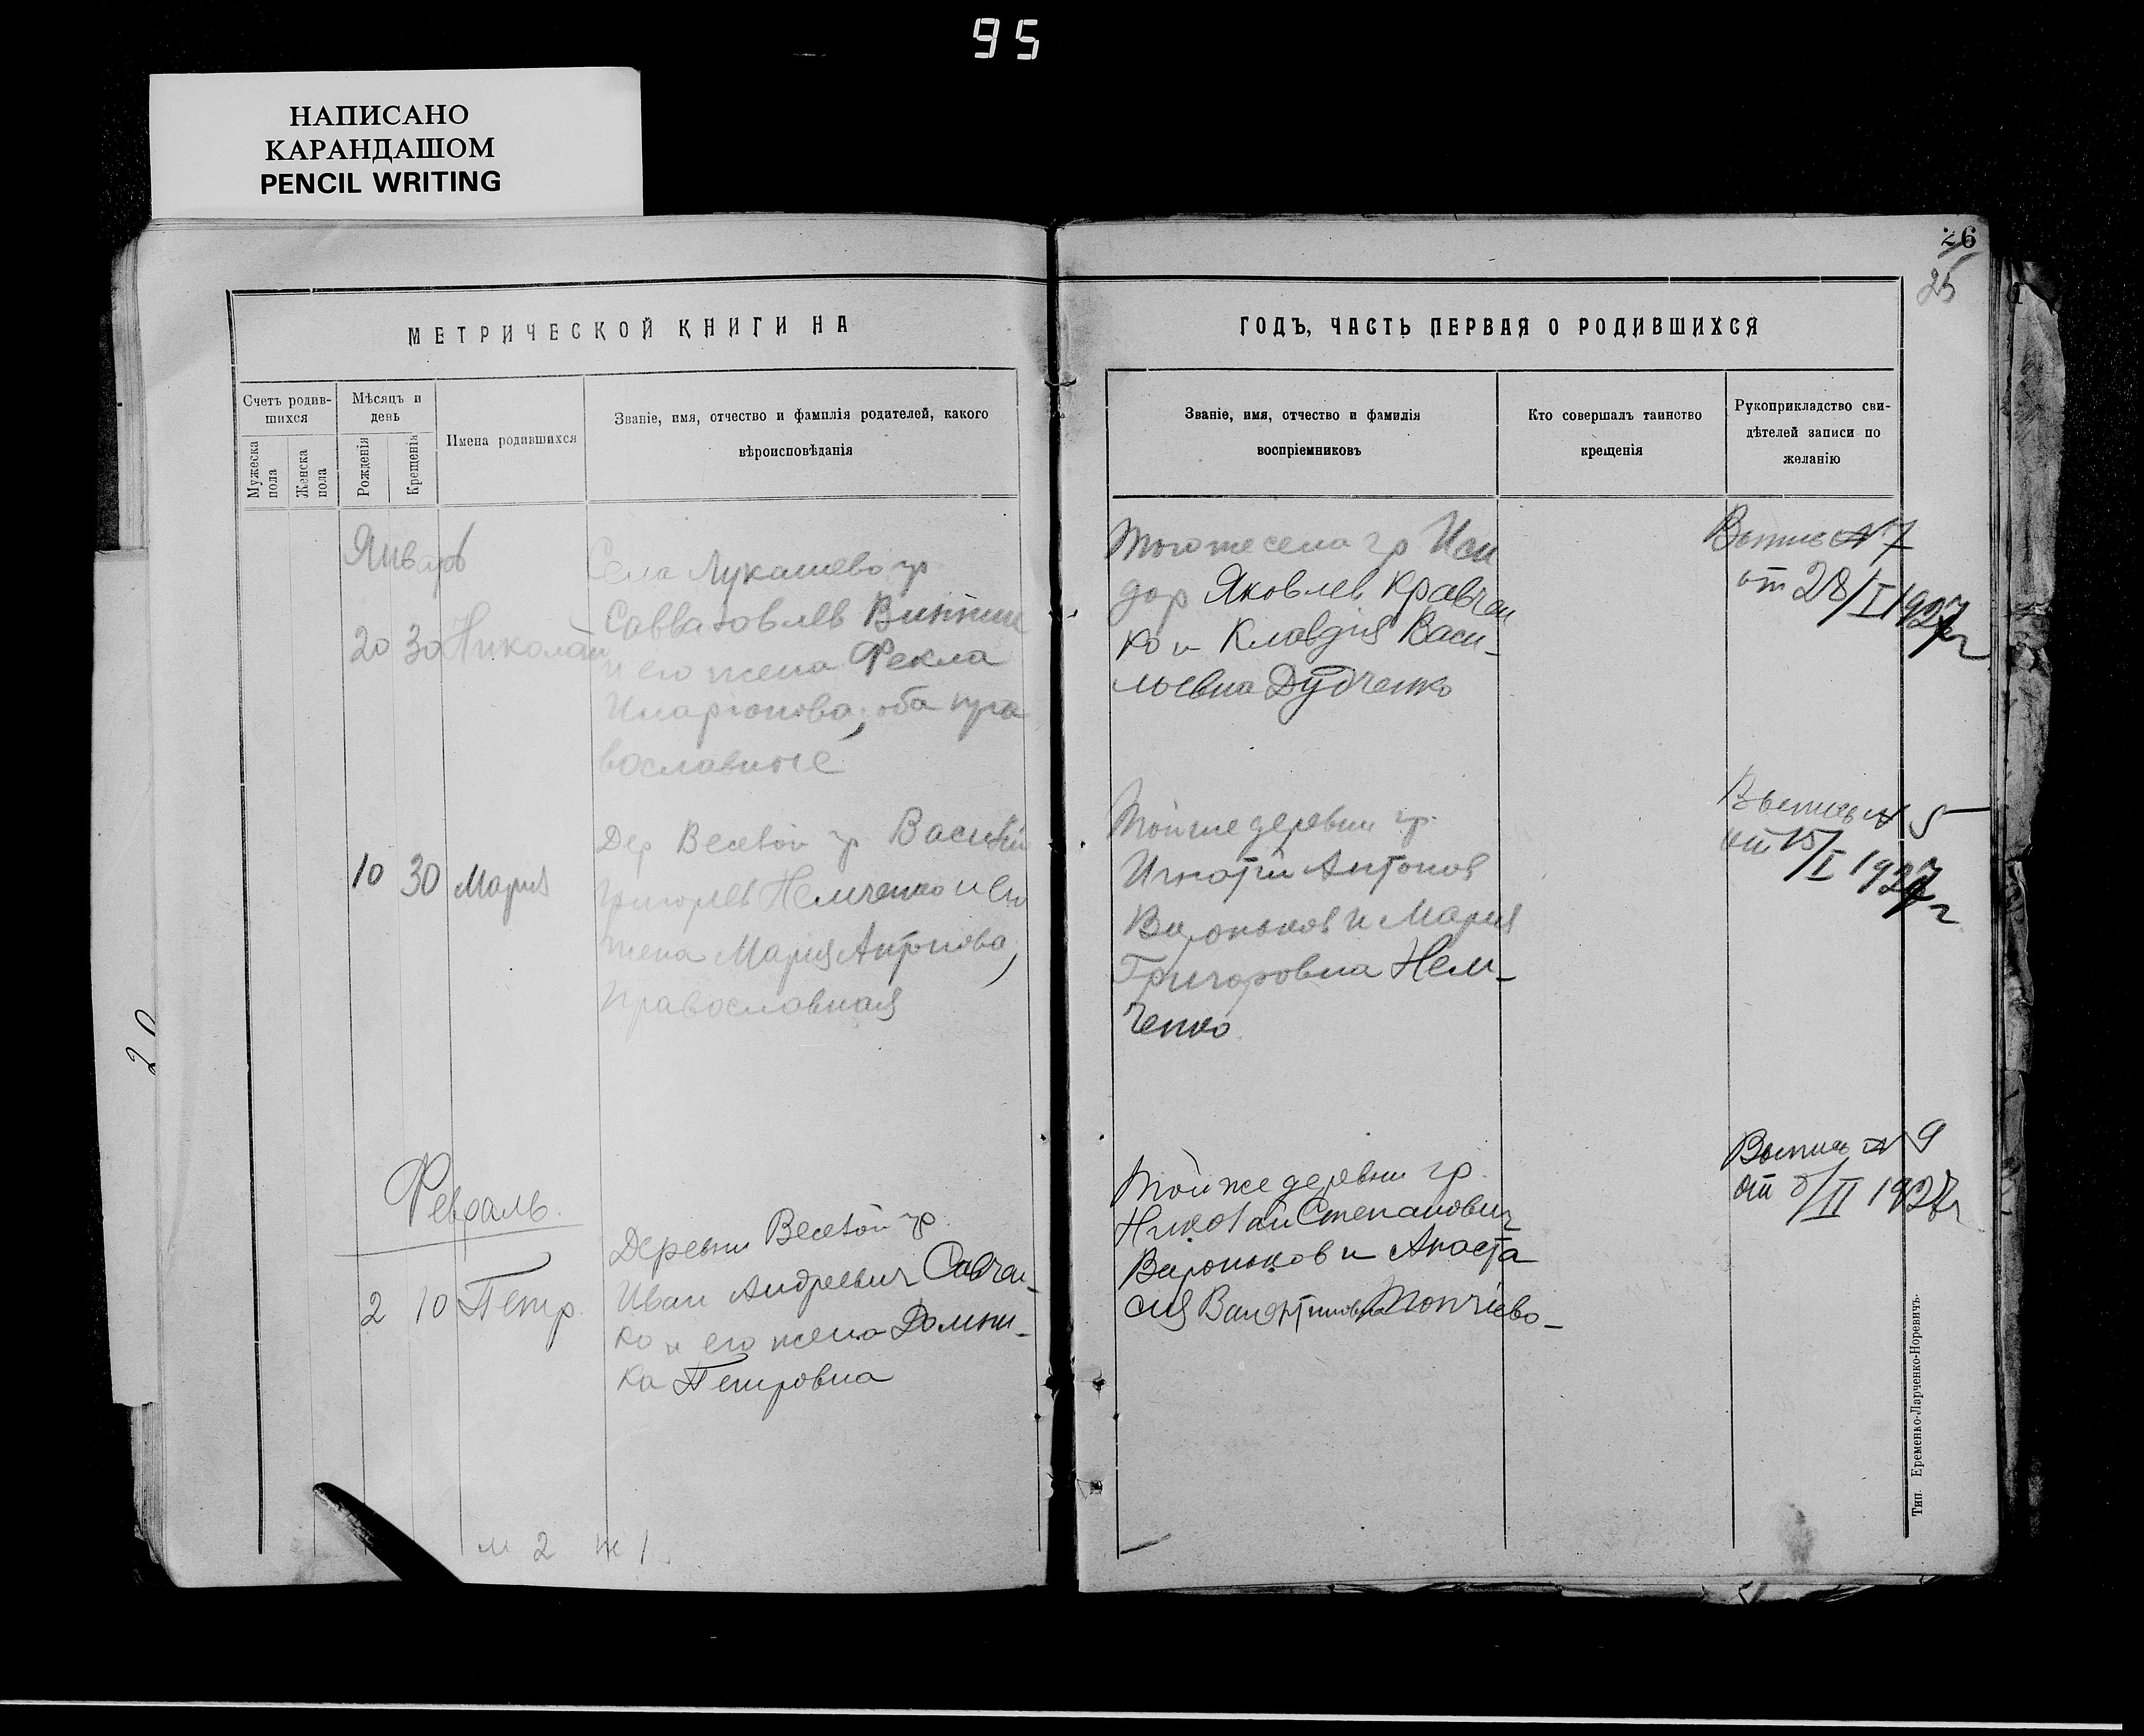 95
НАПИСАНО
КАРАНДАШОМ
PENCIL WRITING
26
25
МЕТРИЧЕСКОЙ КНИГИ НА
ГОДЪ, ЧАСТЬ ПЕРВАЯ О РОДИВШИХСЯ
Счетъ родив-
шихся
Мѣсяцъ и
день
Имена родившихся
Званіе, имя, отчество и фамилія родителей, какого
вѣроисповѣданія
Мужеска
пола
Женска
пола
Рожденія
Крещенія
Званіе, имя, отчество и фамилія
воспріемниковъ
Кто совершалъ таинство
крещенія
Рукоприкладство сви-
дѣтелей записи по
желанію
Январь
20 30 Николай
Села Лукашево гр
Савва
и его жена Фекла
оба пра
вославные
Того же села гр Иси
дор Яковлев Кравчен
ко и Клавдия Васи-
льевна Дудченко
Выпись № 7
от 28/I 1927 г
10 30 Мария
Дер Веселой гр Василий
Григорьев Немченко и его
жена Мария Антонова,
православная
Той же деревни гр.
Игнатий Антонов
и Мария
Григоровна Нем-
ченко
Выпись № 5
от 15/I 1927 г
Февраль.
2 10 Петр.
Деревни Веселой гр.
Иван Андреевич Савчен-
ко и его жена Домни-
ка Петровна
Той же деревни гр.
Николай Степанович
и Анаста
сия Валентиновна
Выпись № 9
от /II 1927 г
м 2 ж 1.
20
Тип. Еременко-Ларченко-Норевичъ.